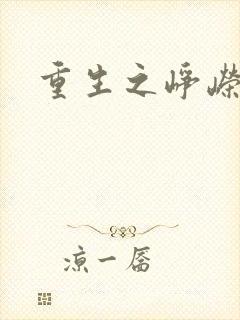 重生之峥嵘
凉一孱